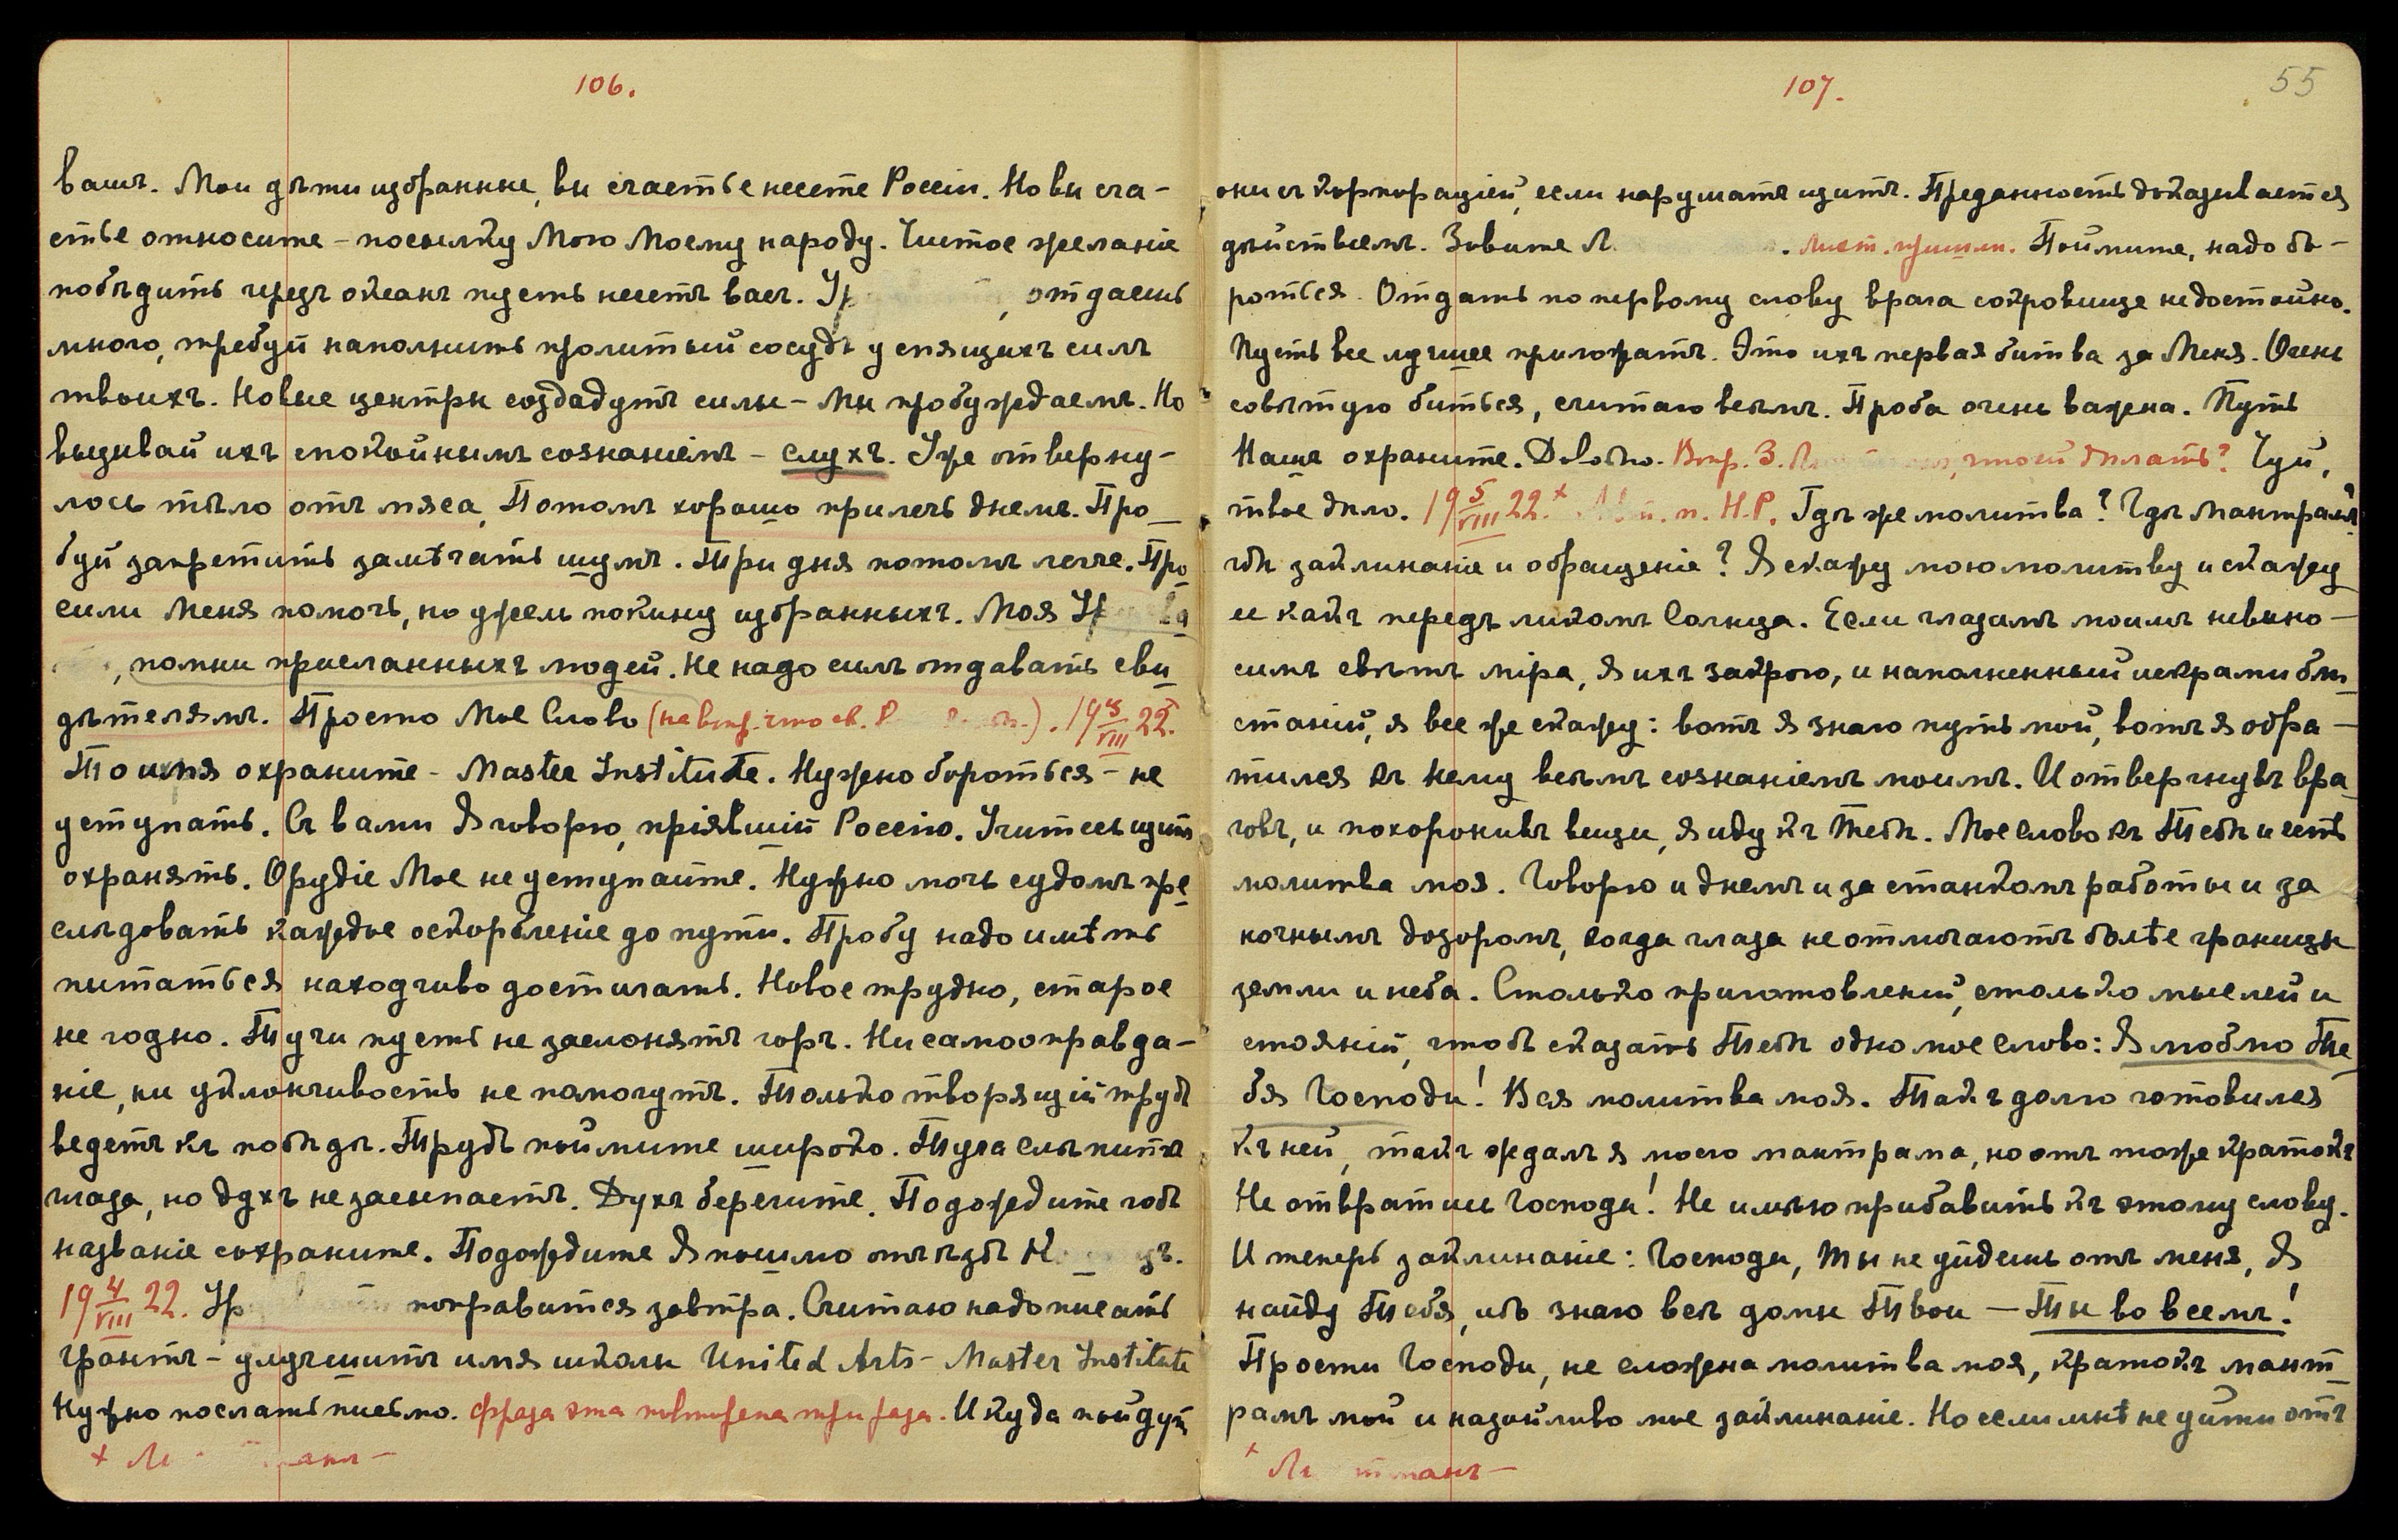 106.
вашъ. Мои дѣти избранные, вы счастье несете Россіи. Но вы сча-
стье относите – посылку Мою Моему народу. Чистое желаніе
побѣдить чрезъ океанъ пусть несетъ васъ. Ур , отдаешь
много, требуй наполнить пролитый сосудъ у спящихъ силъ
твоихъ. Новые центры создадутъ силы – Мы пробуждаемъ. Но
вызывай ихъ спокойнымъ сознаніемъ – слухъ. Уже отверну-
лось тѣло отъ мяса, Потомъ хорошо прилечь днемъ. Про-
буй запретить замѣчать шумъ. Три дня потомъ легче. Про-
сили Меня помочь, но ужель покину избранныхъ. Моя Ур
, помни присланныхъ людей. Не надо силъ отдавать сви-
дѣтелямъ. Просто Мое Слово (на вопр. что св. ). 19 5/VIII 22.
То имя охраните – Master Institute. Нужно бороться – не
уступать. Съ вами Я говорю, пріявшій Россію. Учитесь щитъ
охранять. Орудіе Мое не уступайте. Нужно мочь судомъ пре-
слѣдовать каждое оскорбленіе до пути. Пробу надо имѣть
пытаться находчиво достигать. Новое трудно, старое
не годно. Тучи пусть не заслонятъ горъ. Ни самооправда-
ніе, ни уклончивость не помогутъ. Только творящій трудъ
ведетъ къ побѣдѣ. Трудъ поймите широко. Туга слѣпитъ
глаза, но духъ не засыпаетъ. Духъ берегите. Подождите годъ
названіе сохраните. Подождите Я пошлю отъѣздъ
19 4/VIII 22. Ур поправится завтра. Считаю надо писать
Грантъ – улучшитъ имя школы United Arts – Master Institute
Нужно послать письмо. фраза эта повторена три раза. И куда пойдутъ
107.
55
они съ корпораціей, если нарушатъ щитъ. Преданность доказывается
дѣйствіемъ. Зовите Л . Поймите, надо бо-
роться. Отдать по первому слову врага сокровище недостойно.
Пусть все лучшее приложатъ. Это ихъ первая битва за Меня. Очень
совѣтую биться, считаю всѣмъ. Проба очень важна. Путь
Нашъ охраните. Довольно. Вопр. З. Л что ей дѣлать? Чуй,
твое дѣло. 19 5/VIII 22. х п. Н.Р. Гдѣ же молитва? Гдѣ мантрамъ?
гдѣ заклинаніе и обращеніе? Я скажу мою молитву и скажу
ее какъ передъ ликомъ Солнца. Если глазамъ моимъ невыно-
симъ свѣтъ міра, я ихъ закрою, и наполненный искрами бли-
станій, я все же скажу: вотъ я знаю путь мой, вотъ я обра-
тился къ Нему всѣмъ сознаніемъ моимъ. И отвергнувъ вра-
говъ, и похоронивъ вещи, я иду къ Тебѣ. Мое слово къ Тебѣ и есть
молитва моя. Говорю и днемъ и за станкомъ работы и за
ночнымъ дозоромъ, когда глаза не отличаютъ болѣе границы
земли и неба. Столько приготовленій, столько мыслей и
стояній, чтобъ сказать Тебѣ одно мое слово: Я люблю Те-
бя Господи! Вся молитва моя. Такъ долго готовился
къ ней, такъ ждалъ я моего мантрама, но онъ тоже кратокъ
Не отвратись Господи! Не имѣю прибавить къ этому слову.
И теперь заклинаніе: Господи, Ты не уйдешь отъ меня, Я
найду Тебя, ибо знаю всѣ домы Твои – Ты во всемъ!
Прости Господи, не сложена молитва моя, кратокъ мант-
рамъ мой и назойливо мое заклинаніе. Но если мнѣ не уйти отъ